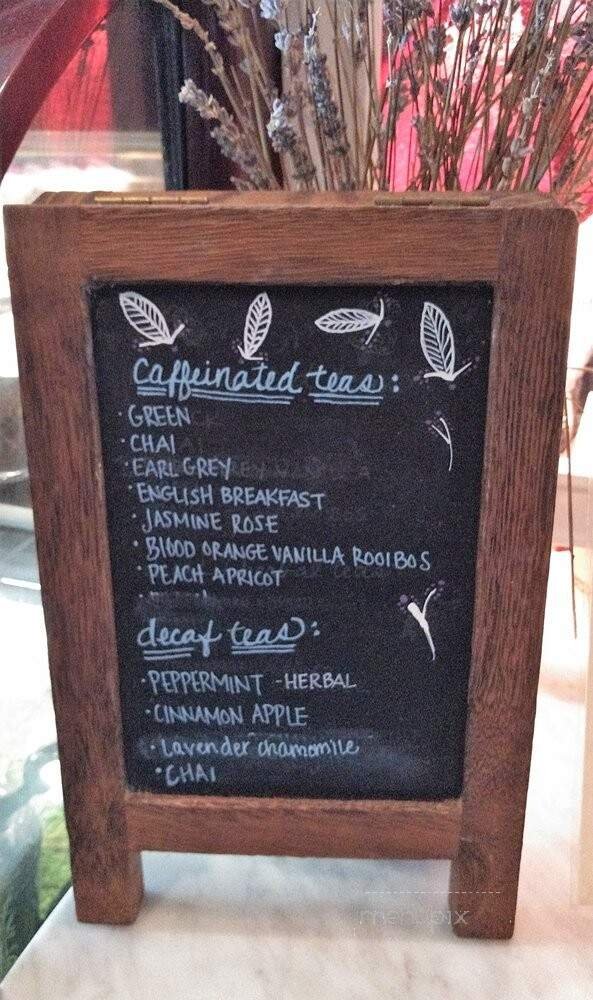 Caffeinated teas:
· GREEN
· CHAI
· EARL GREY
· ENGLISH BREAKFAST
· JASMINE ROSE
· BLOOD ORANGE VANILLA ROOIBOS
· PEACH APRICOT
decaf teas:
· PEPPERMINT - HERBAL
· CINNAMON APPLE
· Lavender chamomile
· CHAI
menupix